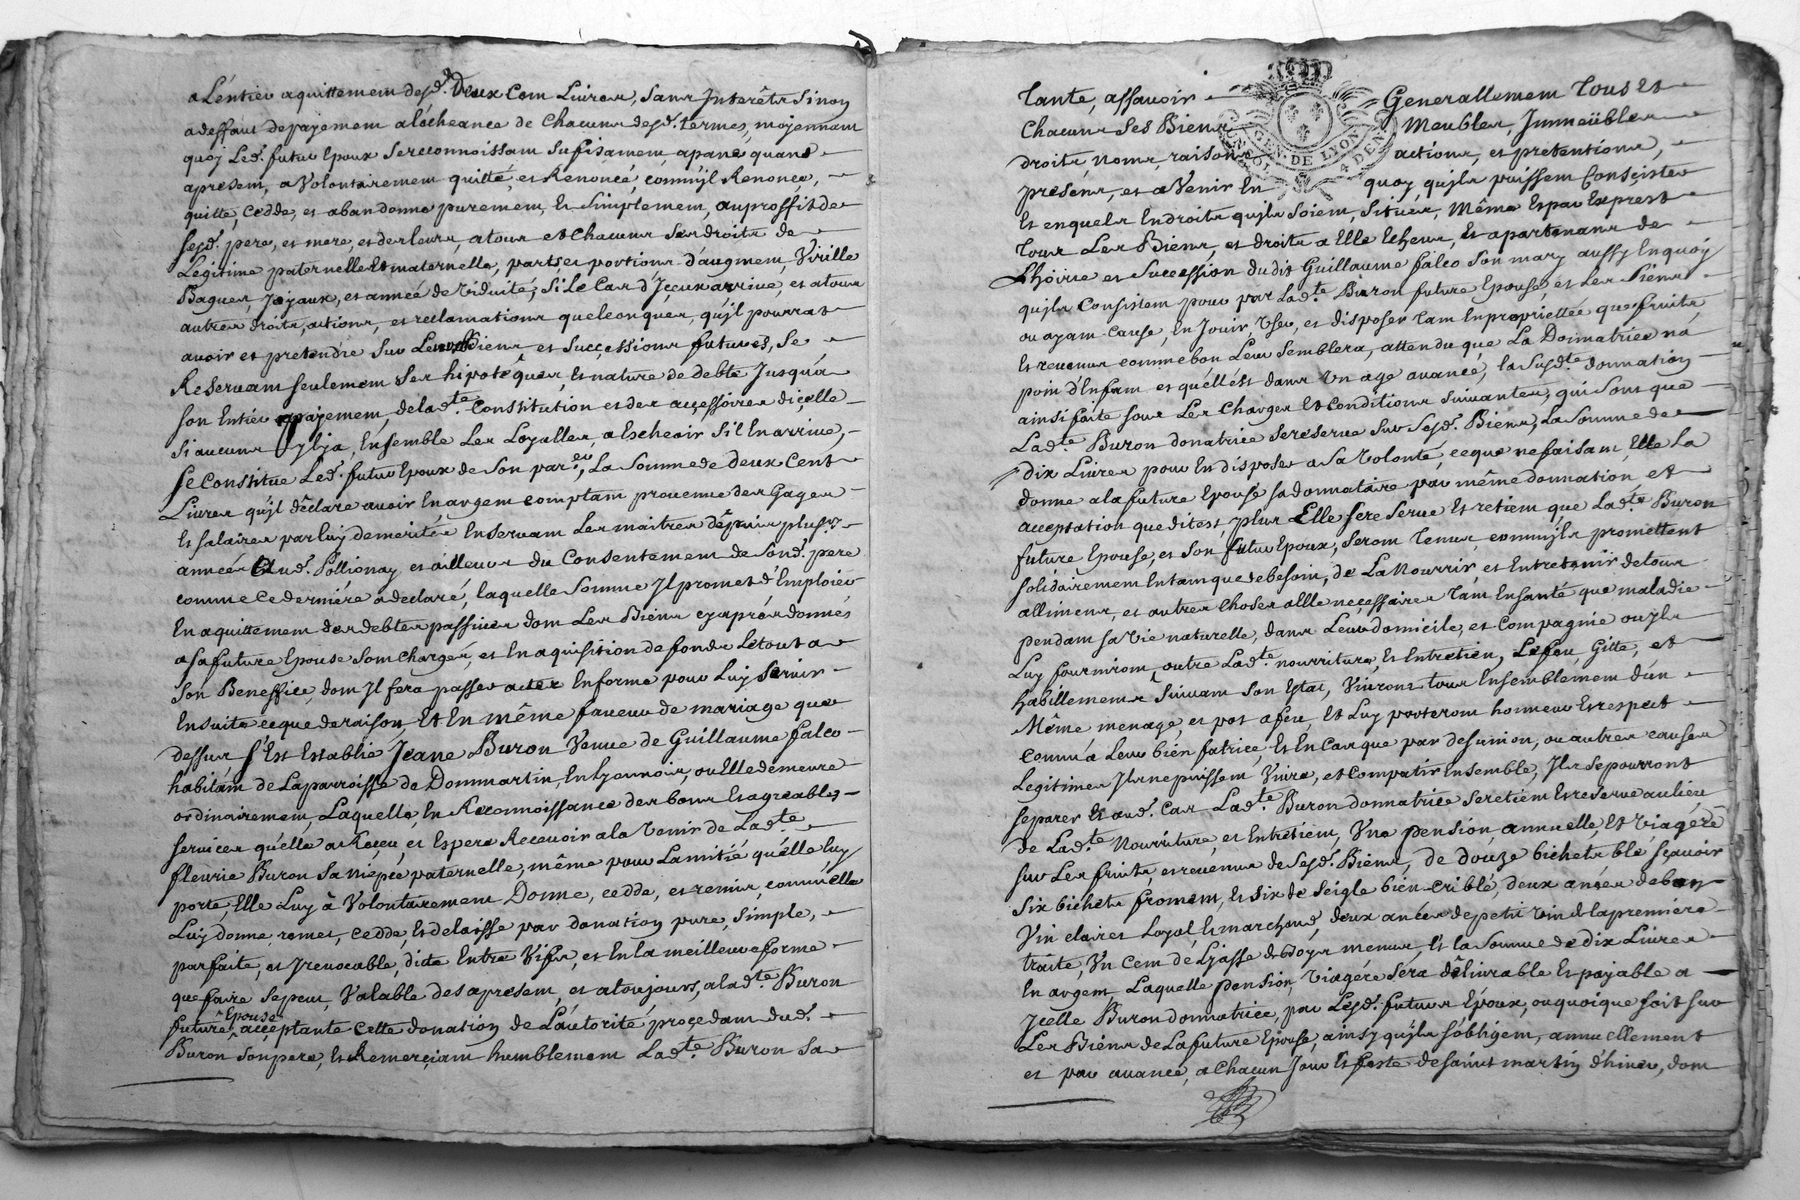 a Léntier aquittement desd. Deux Cem Livres, sans Interêts sinon
a deffaut de payement a lécheance de Chacuns desd. termes, moyennam
quoy Led. futur Epoux se reconnoissam sufisamem apané quand
apresem, a volontairemem quitté, et Renoncé, comm'jl Renonce,
quitte, cedde, et abandonne puremem, Et simplemem, au proffit de
sesd. pere, et mere, et des leurs, a tous et Chacuns ses droits de
Legitime paternelle Et maternelle, parts, et portions d'augmem, Virille
Bagues, Joyaux, et année de Viduité, si Le Cas d'Jceux arrive, et a tous
autres droits, actions, et reclamations quelconques, qu'jl pourrat
avoir et pretendre sur Leurs Biens et successions futures, se
Reservam seulemem ses hipotéques, Et nature de debte Jusqu'a
son Entier payement, de lad.te Constitution et des accessoires dicelle
si aucuns y'lja, Ensemble Les Loyalles, a Escheoir s'il En arrive,
se Constitue Led. futur Epoux de son par.er, La somme de deux Cent
Livres qu'jl déclare avoir En argem comptam provenue des Gages
Et salaires par luy demerités En servam Les maitres depuis plus.rs
années aud. Pollionay et ailleurs du Consentemem de sond. pere
comme ce dernière a declaré, laquelle somme Jl promet d'Emploier
En aquittemem des debtes passives dom Les Biens cy aprés donnés
a sa future Epouse som chargés, et En aquisition de fonds Le tout a
son Beneffice, dom Jl fera passer actes En forme pour Luy servir
Ensuite ce que de raison, Et En même faveur de mariage que
dessus s'Est Establie Jeane Buron Veuve de Guillaume falco
habitam de La parroisse de Dommartin, En Lyonnois, ou Elle demeure
ordinairemem, Laquelle, En Reconnoissance des bons Et agreables
services qu'elle a Reçeu, et Espere Recevoir a la Venir de Lad.te
fleurie Buron sa niépce paternelle, même pour Lamitié qu'elle luy
porte, Elle Luy à Volontairement Donne, cedde, et remis, comm'elle
Luy donne, remet, cedde, Et delaisse par donation pure, simple,
parfaite, et Jrrevocable, dite Entre Vifs, et En la meilleure forme
que faire se peut, Valable des apresem, et a toujours, a lad.te Buron
future Epouse acceptante cette donation de L'autorité procedam dud.
Buron son pere, Et Remerciam humblemem Lad.te Buron sa
Tante, assavoir Generallemem Tous Et
Chacuns ses Biens Meubles, Jmmeübles
droits noms, raisons actions, et pretentions,
présens, et a Venir En quoy qu'jls puissem Consçister
Et En quels Endroits qu'jls soiem, situés, Même Et par Exprest
Tous Les Biens, et droits a Elle Echeus, Et apartenans de
L'hoirie et succession dudit Guillaume falco son mary aussy En quoy
qu'jls Consistem pour par Lad.te Buron future Epouse, et Les siens
ou ayam cause, En Jouir, User, et disposer tam En propriettée que fruits
Et revenus comme bon Leur semblera, attendu que La Donnatrice na
poin d'Enfam et qu'elle Est dans Un age avancé, la susd.te donnation
ainsi faite sous Les Charges Et Conditions suivantes, qui sont que
Lad.te Buron donatrice se reserve sur sesd. Biens, La somme de
dix Livres pour En disposer a sa Volonté, ce que ne faisam, Elle La
donne a la future Epouse sa donnataire par même donnation et
acceptation que dit est, plus Elle se reserve Et retiem que Lad.te Buron
future Epouse, et son futur Epoux, serom Tenus, comm'jls promettent
solidairemem En tam que de besoin, de La Nourrir, et Entretenir de tous
allimens, et autres choses a Elle necessaires Tam En santé que maladie
pendam sa Vie naturelle, dans Leur domicile, et Compagnie ou jls
Luy fournirom, outre Lad.te nourriture, Et Entretien, Le feu, Gitte, et
habillemens suivam son Estat, Vivrons tous Ensemblemem d'un
Même menage, et pot a feu, Et Luy porterom honneur Et respect
comm'a Leur bienfatrice, Et En Cas que par desunion, ou autres causes
Legitimes Jls ne puissem Vivre, et compatir Ensemble, Jls se pourront
separer Et aud. Cas Lad.te Buron donnatrice se retiem Et reserve au lieu
de Lad.te Nourriture, et Entretiem, Une pension annuelle Et Viagére
sur Les fruits, et revenus de sesd. Biens, de doüze bichets blé sçavoir
six bichets fromem, Et six de seigle bien criblé, deux anées de bon
Vin claires Loyal, Et marchand, deux anées de petit vin de la premiere
traite, Un Cem de Liasse de Boys menus, Et la somme de dix Livres
En argem, Laquelle pension Viagére sera délivrable Et payable a
Jcelle Buron donnatrice, par Lesd. futurs Epoux, ou quoique soit sur
Les Biens de La future Epouse, ainsy qu'jls s'obligem, annuellement
et par avance, a Chacun Jour Et feste de saint martin d'hiver, dom
GEN. DE LYON
4 DEN.